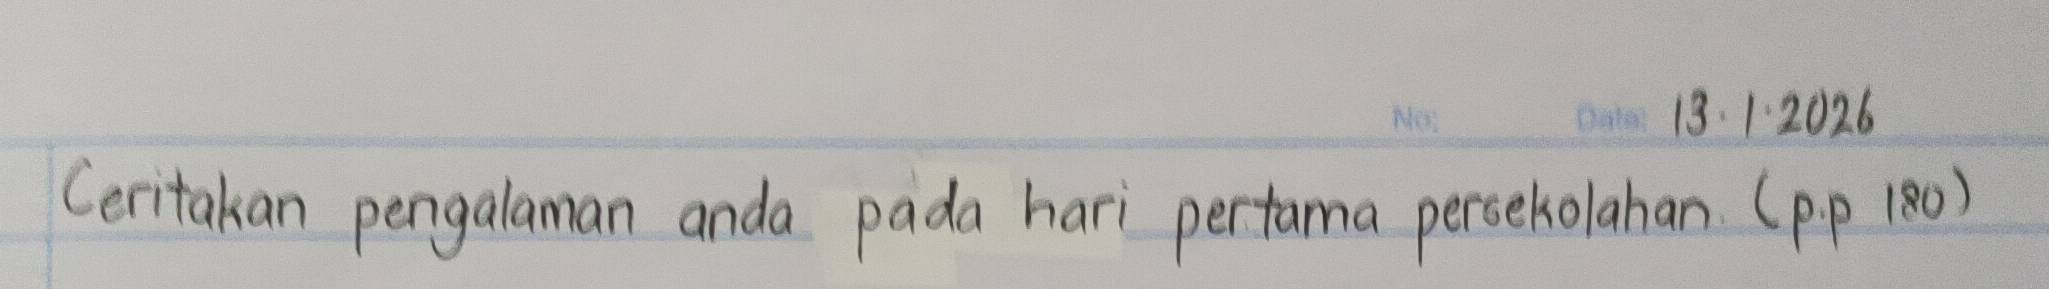 No: Date: 13.1.2026
Ceritakan pengalaman anda pada hari pertama persekolahan. (p.p 180)